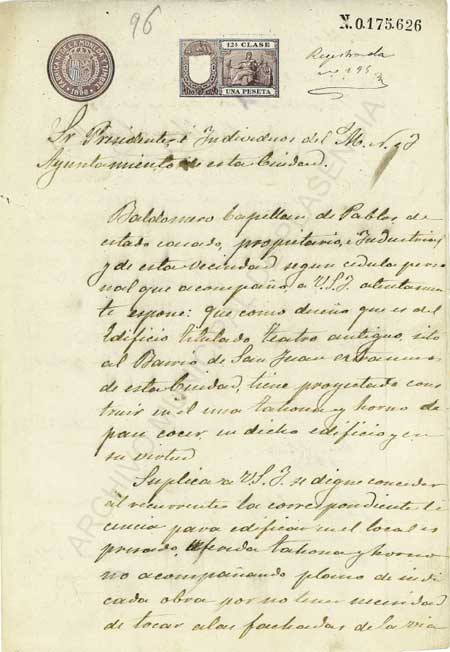 96
N.0.175.626
FABRICA DE LA MONEDA Y TIMBRE
1886
12ª CLASE
UNA PESETA
Registrada
nº 295
Sr Presidente é Individuos del M. N. y I
Ayuntamiento de esta Ciudad.
Baldomero Capellan, de Pablos, de
estado casado, propietario, é Industrial
y de esta vecindad segun cedula perso
nal que acompaño, a V.S.I. atentamen
te espone: que como dueño que es del
Edificio titulado teatro antiguo, sito
al Barrio de San Juan extramuros
de esta Ciudad, tiene proyectado cons
truir en el una tahona y horno de
pan cocer, en dicho edificio y en
su virtud
Suplica a V.S.I. se digne conceder
al recurrente la correspondiente li
cencia para edificar en el local es
presado, referida tahona y horno
no acompañando plano de indi
cada obra por no tener necesidad
de tocar a las fachadas de la via
ARCHIVO MUNICIPAL DE PLASENCIA